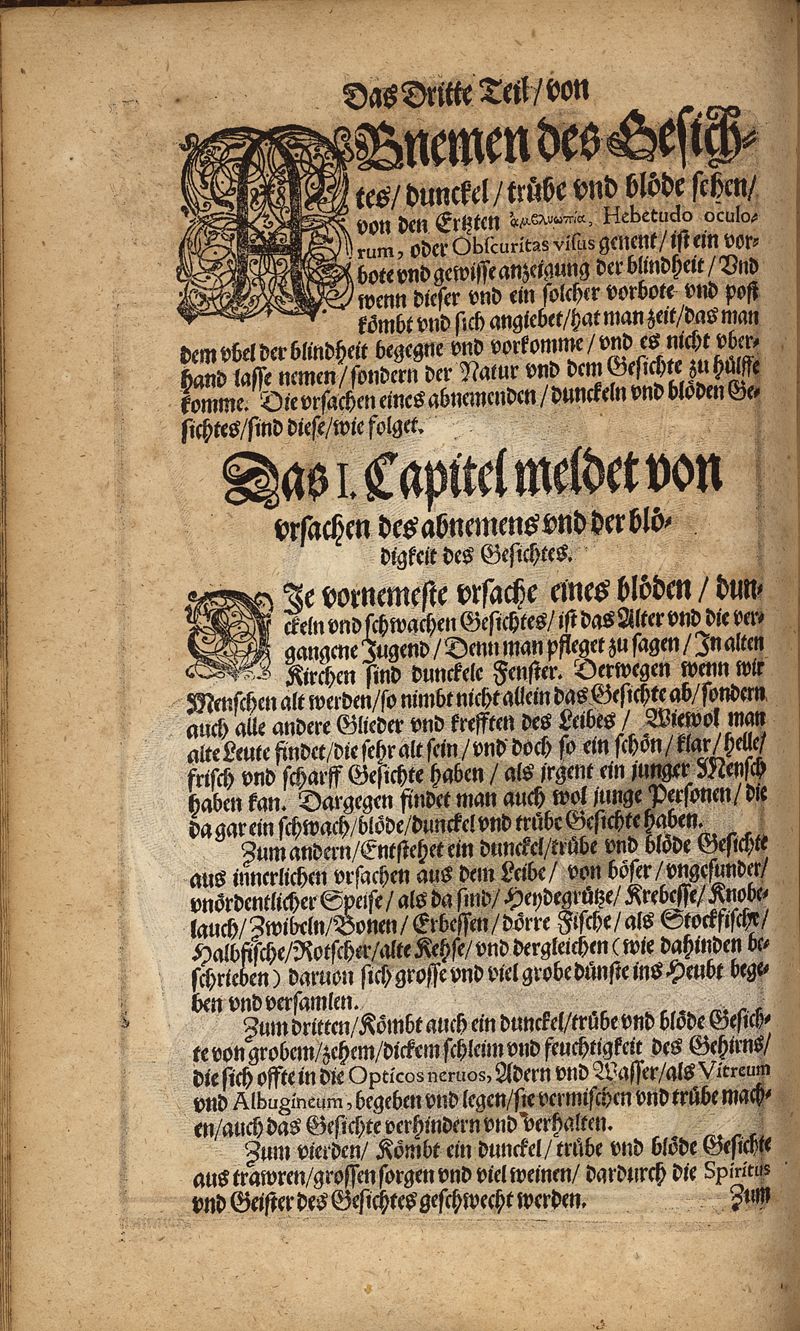 Das Dritte Teil/von
ABnemen des Gesich-
tes/ dunckel/trübe vnd blöde sehen/
von den Ertzten ἀμβλυωπία, Hebetudo oculo-
rum, oder Obscuritas visus genent/ ist ein vor-
bote vnd gewisse anzeigung der blindheit/ Vnd
wenn dieser vnd ein solcher vorbote vnd post
kömbt vnd sich angiebet/hat man zeit/das man
dem vbel der blindheit begegne vnd vorkomme/ vnd es nicht vber-
hand lasse nemen/ sondern der Natur vnd dem Gesichte zu hülffe
komme. Die vrsachen eines abnemenden/dunckeln vnd blöden Ge-
sichtes/sind diese/wie folget.
Das I. Capitel meldet von
vrsachen des abnemens vnd der blö-
digkeit des Gesichtes.
DIe vornemeste vrsache eines blöden / dun-
ckeln vnd schwachen Gesichtes/ ist das Alter vnd die ver-
gangene Jugend/ Denn man pfleget zu sagen/ In alten
Kirchen sind dunckele Fenster. Derwegen wenn wir
Menschen alt werden/so nimbt nicht allein das Gesichte ab/sondern
auch alle andere Glieder vnd krefften des Leibes/ Wiewol man
alte Leute findet/die sehr alt sein/ vnd doch so ein schön/ klar/ helle/
frisch vnd scharff Gesichte haben / als jrgent ein junger Mensch
haben kan. Dargegen findet man auch wol junge Personen/ die
da gar ein schwach/blöde/dunckel vnd trübe Gesichte haben.
Zum andern/Entstehet ein dunckel/trübe vnd blöde Gesichte
aus innerlichen vrsachen aus dem Leibe/ von böser/ vngesunder/
vnördentlicher Speise/ als da sind/ Heydegrütze/ Krebesse/ Knobe-
lauch/Zwibeln/Bonen/ Erbessen/ dörre Fische/ als Stockfische/
Halbfische/Rotscher/alte Kehse/ vnd dergleichen (wie dahinden be-
schrieben) daruon sich grosse vnd viel grobe dünste ins Heubt bege-
ben vnd versamlen.
Zum dritten/Kömbt auch ein dunckel/trübe vnd blöde Gesich-
te von grobem/zehem/dickem schleim vnd feuchtigkeit des Gehirns/
die sich offte in die Opticos neruos, Adern vnd Wasser/als Vitreum
vnd Albugineum, begeben vnd legen/sie vermischen vnd trübe mach-
en/auch das Gesichte verhindern vnd verhalten.
Zum vierden/ Kömbt ein dunckel/ trübe vnd blöde Gesichte
aus trawren/grossen sorgen vnd viel weinen/ dardurch die Spiritus
vnd Geister des Gesichtes geschwecht werden.
Zum